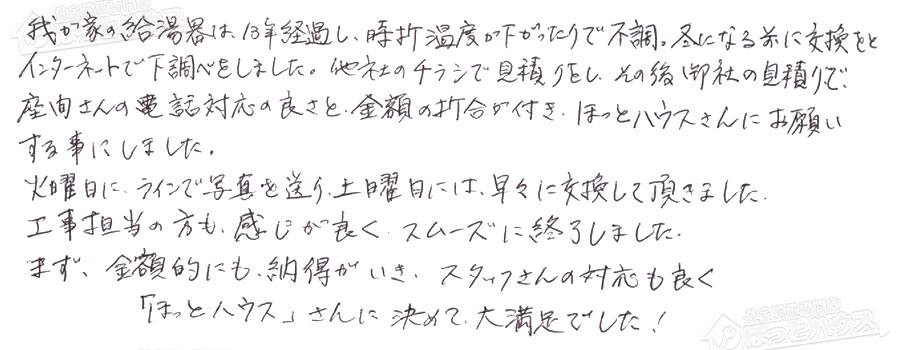 我が家の給湯器は、13年経過し、時折温度が下がったりで不調。冬になる前に交換をと
インターネットで下調べをしました。他社のチラシで見積りをし、その後御社の見積りで、
座間さんの電話対応の良さと、金額の折合が付き、ほっとハウスさんにお願い
する事にしました。
火曜日に、ラインで写真を送り、土曜日には、早々に交換して頂きました。
工事担当の方も、感じが良く、スムーズに終了しました。
まず、金額的にも、納得がいき、スタッフさんの対応も良く
「ほっとハウス」さんに決めて、大満足でした！
ほっとハウス